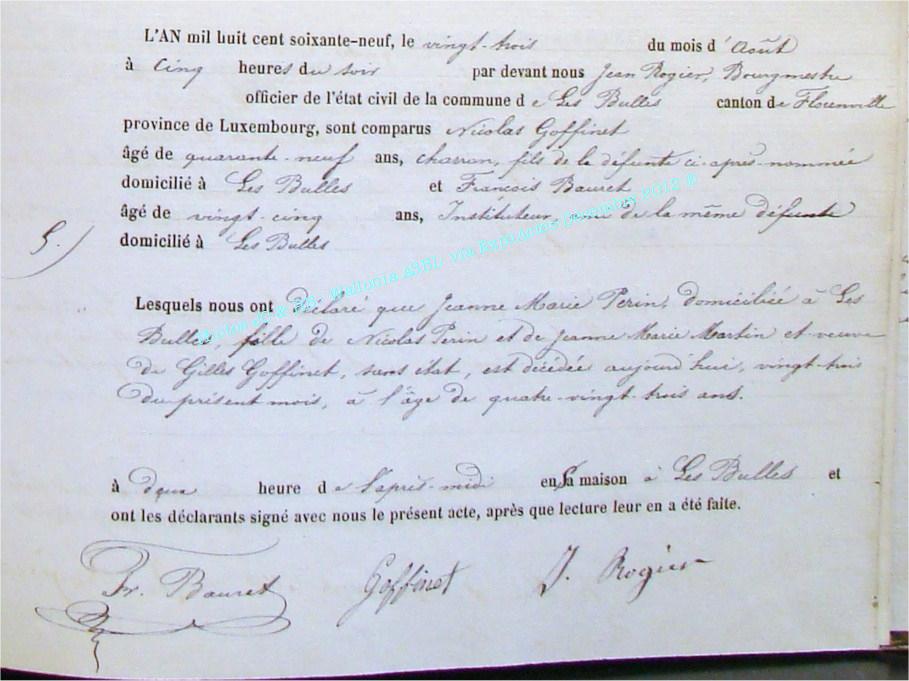 L'AN mil huit cent soixante-neuf, le vingt-trois du mois d'Août
à Cinq heures du soir par devant nous Jean Rogier, Bourgmestre
officier de l'état civil de la commune de Les Bulles canton de Florenville
province de Luxembourg, sont comparus Nicolas Goffinet
âgé de quarante-neuf ans, charron, fils de la défunte ci-après-nommée
domicilié à Les Bulles et Francois Bauret
âgé de vingt-cinq ans, Instituteur, de la même défunte
5.) domicilié à Les Bulles
Lesquels nous ont déclaré que Jeanne Marie Perin, domiciliée à Les
Bulles, fille de Nicolas Perin et de Jeanne Marie Martin et veuve
de Gilles Goffinet, sans état, est décédée aujourd'hui, vingt-trois
du présent mois, à l'âge de quatre-vingt-trois ans.
à deux heure de l'après-midi en sa maison à Les Bulles et
ont les déclarants signé avec nous le présent acte, après que lecture leur en a été faite.
Fr. Bauret Goffinet J. Rogier
Wallonia ASBL via ExpoActes Décembre 2012 ®